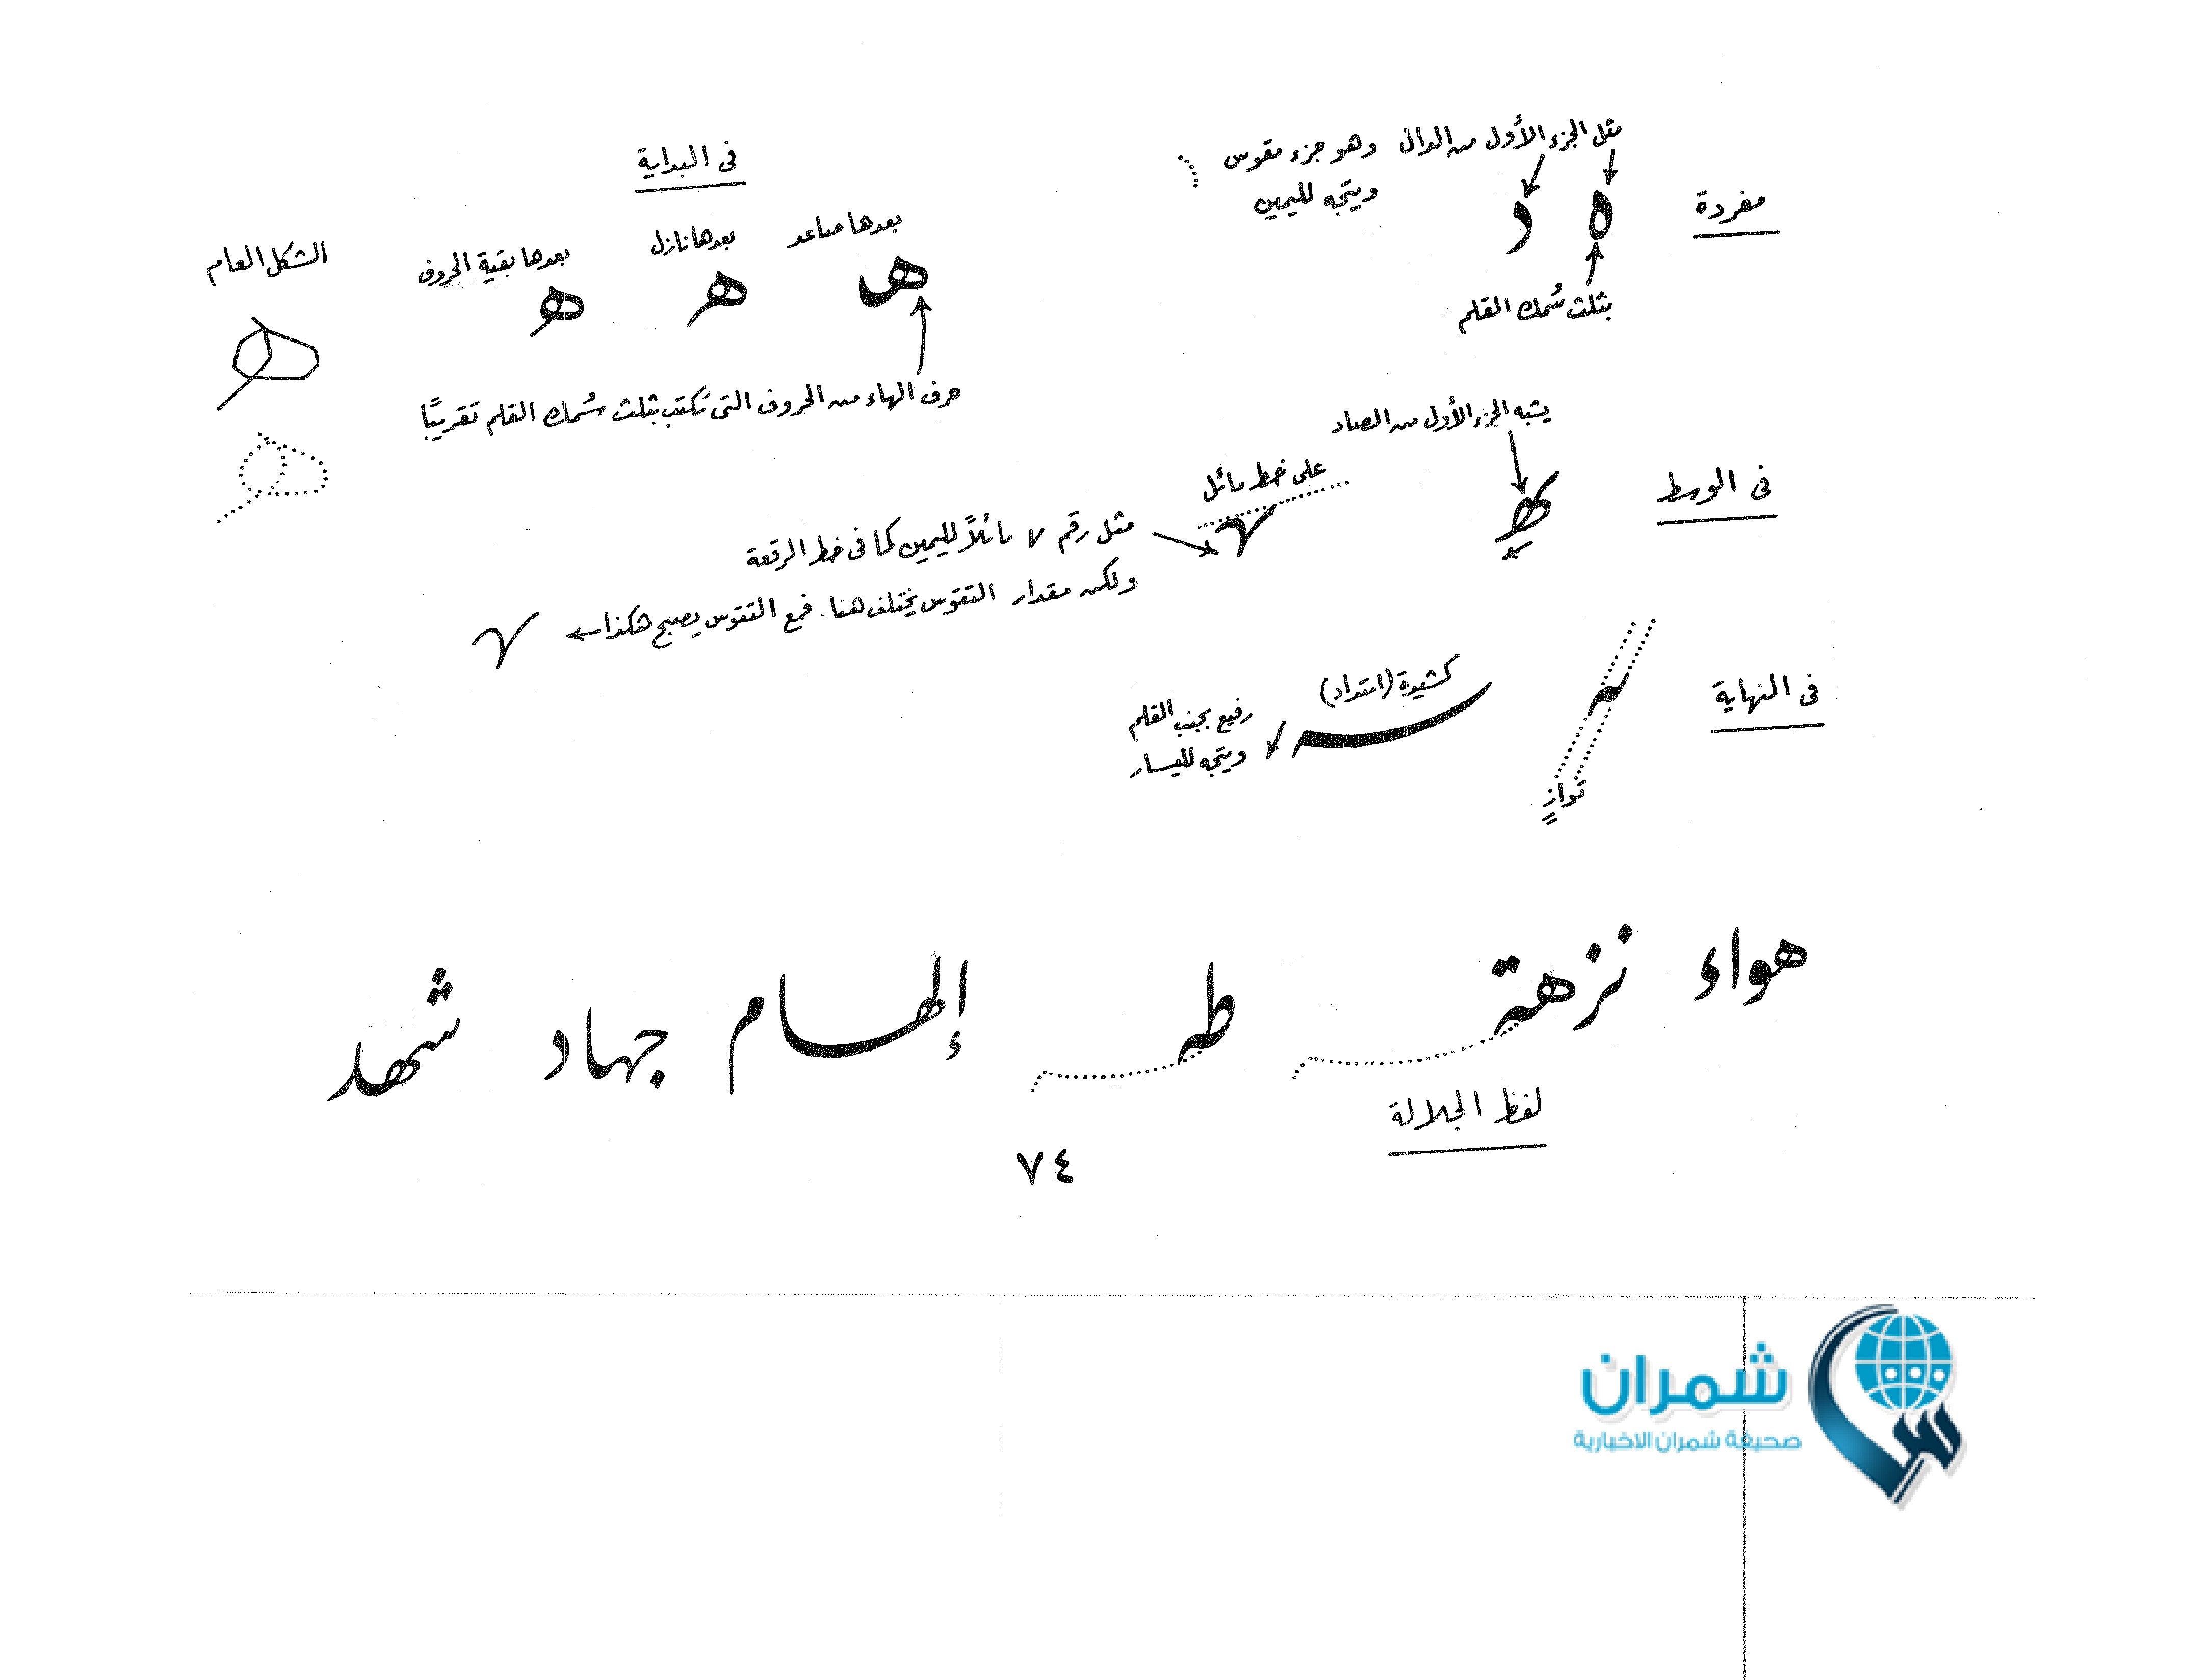 مفردة
مثل الجزء الأول من الدال وهو جزء مقوس
ويتجه لليمين
ه د
بثلث سُمك القلم
فى البداية
بعدها صاعد بعدها نازل بعدها بقية الحروف الشكل العام
هـ هـ هـ
حرف الهاء من الحروف التى تكتب بثلث سُمك القلم تقريبًا
فى الوسط
يشبه الجزء الأول من الصاد
ـهـ
على خط مائل
مثل رقم ٧ مائلاً لليمين كما فى خط الرقعة
ولكن مقدار التقوس يختلف هنا. فمع التقوس يصبح هكذا
فى النهاية
ـه
توازٍ
كشيدة (امتداد)
رفيع بجنب القلم
ويتجه لليسار
هواء نزهة طه إلهام جهاد شهد
لفظ الجلالة
٧٤
شمران
صحيفة شمران الاخبارية